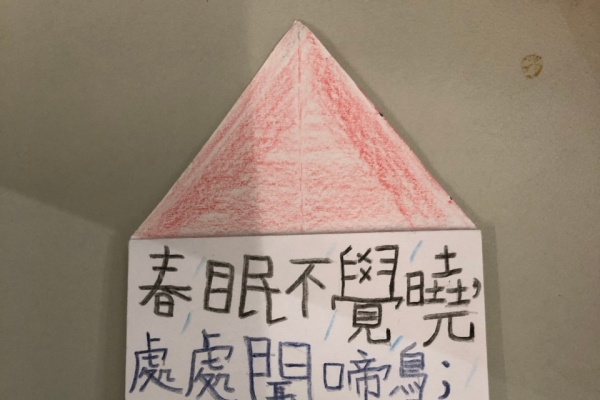 春眠不覺曉,
處處聞啼鳥;